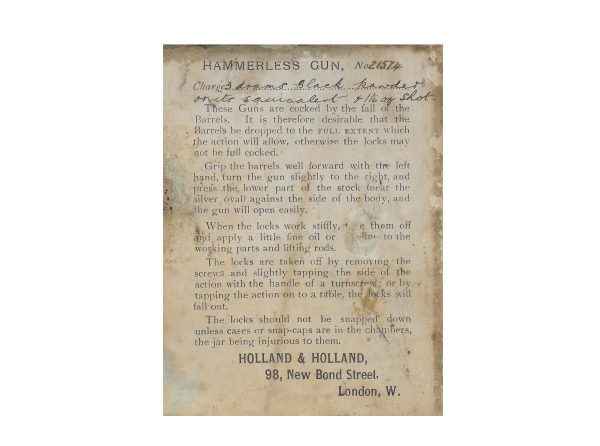 HAMMERLESS GUN, No 21574
Charge 3 drams Black Powder
or its equivalent & 1⅛ oz Shot.
These Guns are cocked by the fall of the
Barrels. It is therefore desirable that the
Barrels be dropped to the FULL EXTENT which
the action will allow, otherwise the locks may
not be full cocked.
Grip the barrels well forward with the left
hand, turn the gun slightly to the right, and
press the lower part of the stock (near the
silver oval) against the side of the body, and
the gun will open easily.
When the locks work stiffly, them off
and apply a little fine oil or to the
working parts and lifting rods.
The locks are taken off by removing the
screws and slightly tapping the side of the
action with the handle of a turnscrew; or by
tapping the action on to a table, the locks will
fall out.
The locks should not be snapped down
unless cases or snap-caps are in the chambers,
the jar being injurious to them.
HOLLAND & HOLLAND,
98, New Bond Street,
London, W.